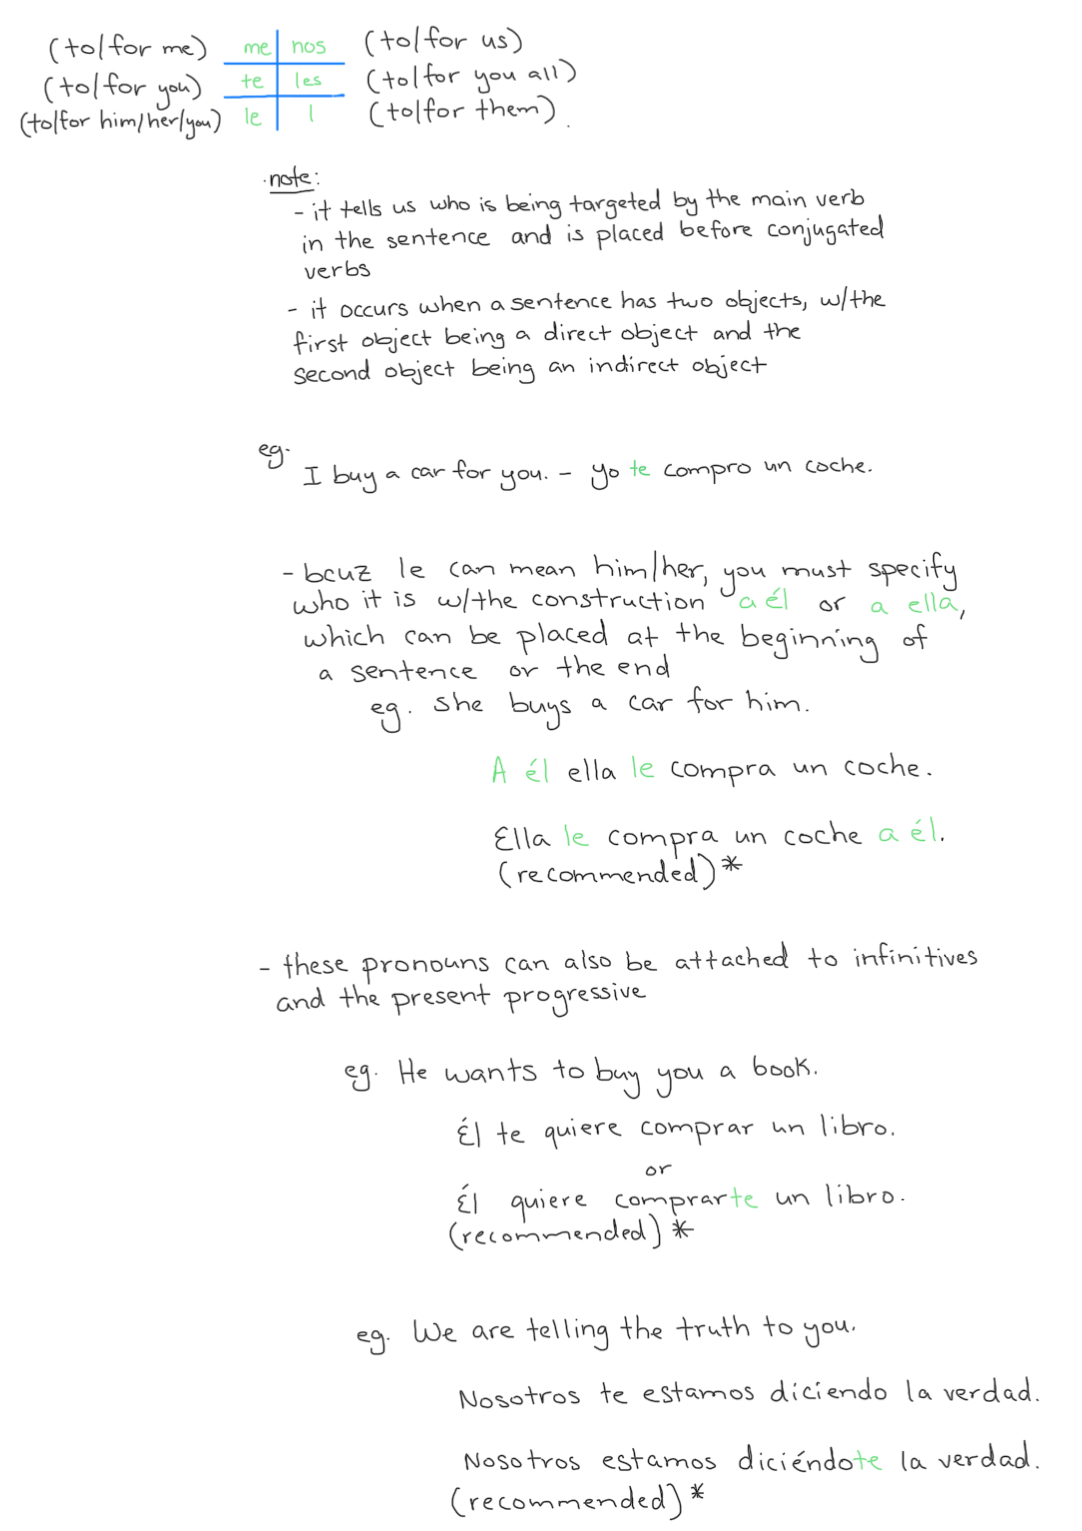 (to/for me) me nos (to/for us)
(to/for you) te les (to/for you all)
(to/for him/her/you) le | (to/for them).
·note:
- it tells us who is being targeted by the main verb
in the sentence and is placed before conjugated
verbs
- it occurs when a sentence has two objects, w/the
first object being a direct object and the
second object being an indirect object
eg.
I buy a car for you. - yo te compro un coche.
- bcuz le can mean him/her, you must specify
who it is w/the construction a él or a ella,
which can be placed at the beginning of
a sentence or the end
eg. She buys a car for him.
A él ella le compra un coche.
Ella le compra un coche a él.
(recommended)*
- these pronouns can also be attached to infinitives
and the present progressive
eg. He wants to buy you a book.
Él te quiere comprar un libro.
or
Él quiere comprarte un libro.
(recommended)*
eg. We are telling the truth to you.
Nosotros te estamos diciendo la verdad.
Nosotros estamos diciéndote la verdad.
(recommended)*